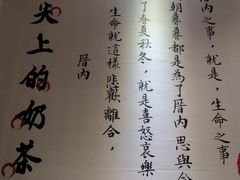 內之事，就是，生命之事
朝暮暮都是為了厝內思與
了春夏秋冬，就是喜怒哀樂
生命就這樣悲歡離合，
厝內
尖上的奶茶